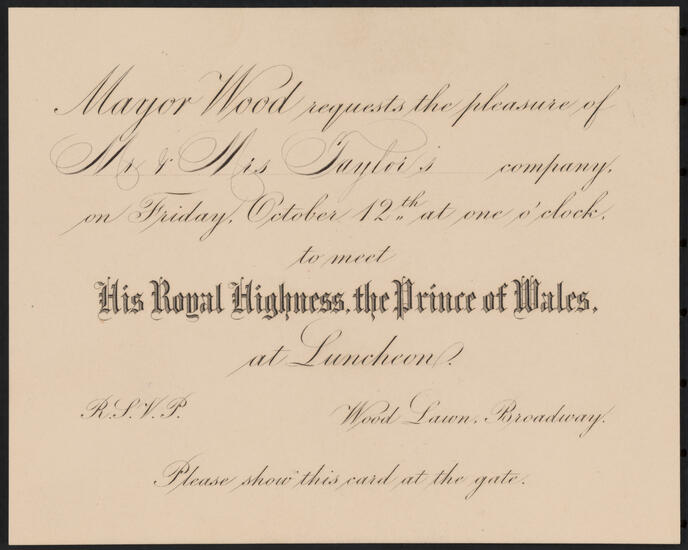 Mayor Wood requests the pleasure of
Mr & Mrs Taylor's company,
on Friday, October 12th at one o'clock,
to meet
His Royal Highness, the Prince of Wales,
at Luncheon.
R.S.V.P. Wood Lawn, Broadway.
Please show this card at the gate.